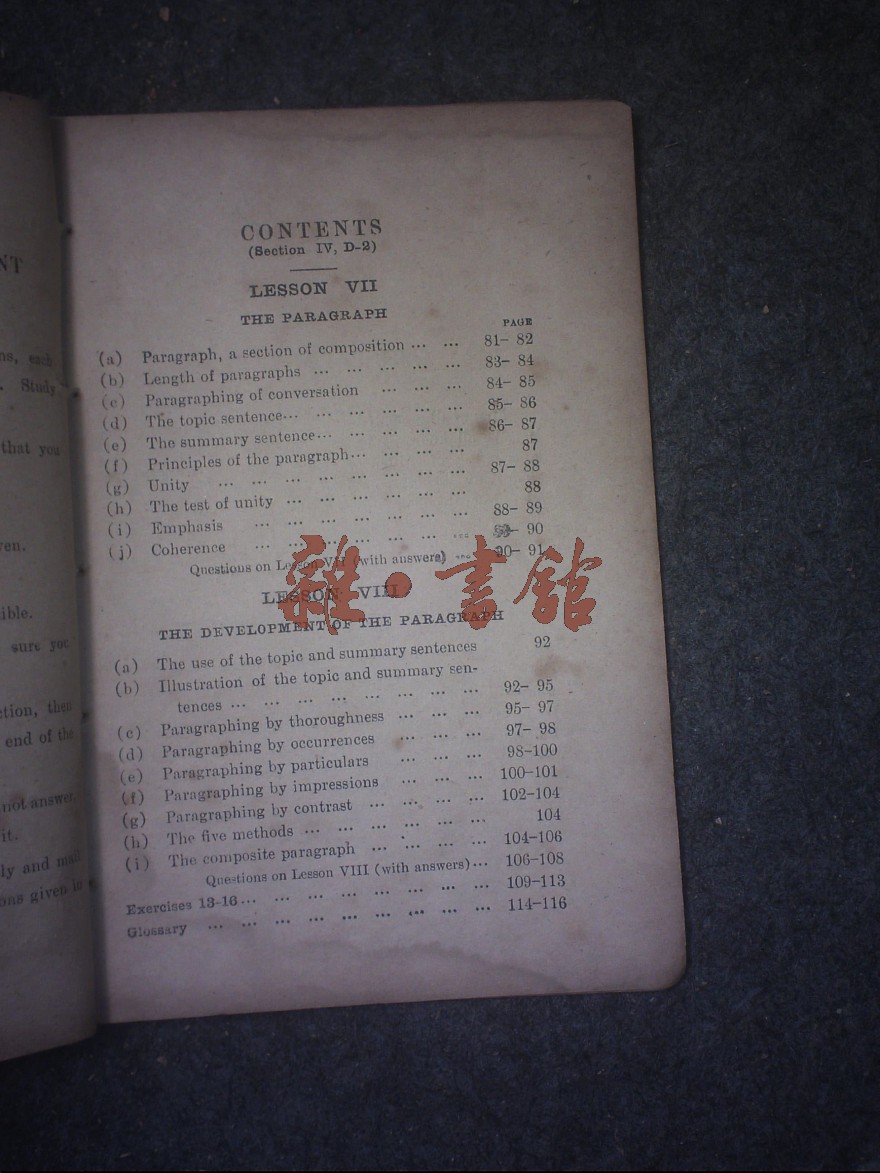 NT
ns, each
. Study
that you
ven.
ible.
sure you
ction, then
end of the
not answer
it.
ly and mail
ons given in
CONTENTS
(Section IV, D-2)
LESSON VII
THE PARAGRAPH
PAGE
(a) Paragraph, a section of composition ... ... 81– 82
(b) Length of paragraphs ... ... ... ... ... 83– 84
(c) Paragraphing of conversation ... ... ... 84– 85
(d) The topic sentence... ... ... ... ... ... 85– 86
(e) The summary sentence... ... ... ... ... 86– 87
(f) Principles of the paragraph... ... ... ... 87
(g) Unity ... ... ... ... ... ... ... ... 87– 88
(h) The test of unity ... ... ... ... ... ... 88
(i) Emphasis ... ... ... ... ... ... ... 88– 89
(j) Coherence ... ... ... ... ... ... ... – 90
Questions on Lesson VII (with answers) ... 90– 91
雜·書館
LESSON VIII
THE DEVELOPMENT OF THE PARAGRAPH
(a) The use of the topic and summary sentences 92
(b) Illustration of the topic and summary sen-
tences ... ... ... ... ... ... ... ... 92– 95
(c) Paragraphing by thoroughness ... ... ... 95– 97
(d) Paragraphing by occurrences ... ... ... 97– 98
(e) Paragraphing by particulars ... ... ... 98–100
(f) Paragraphing by impressions ... ... ... 100–101
(g) Paragraphing by contrast ... ... ... ... 102–104
(h) The five methods ... ... ... ... ... ... 104
(i) The composite paragraph ... ... ... ... 104–106
Questions on Lesson VIII (with answers)... 106–108
Exercises 13-16... ... ... ... ... ... ... ... 109–113
Glossary ... ... ... ... ... ... ... ... ... 114–116